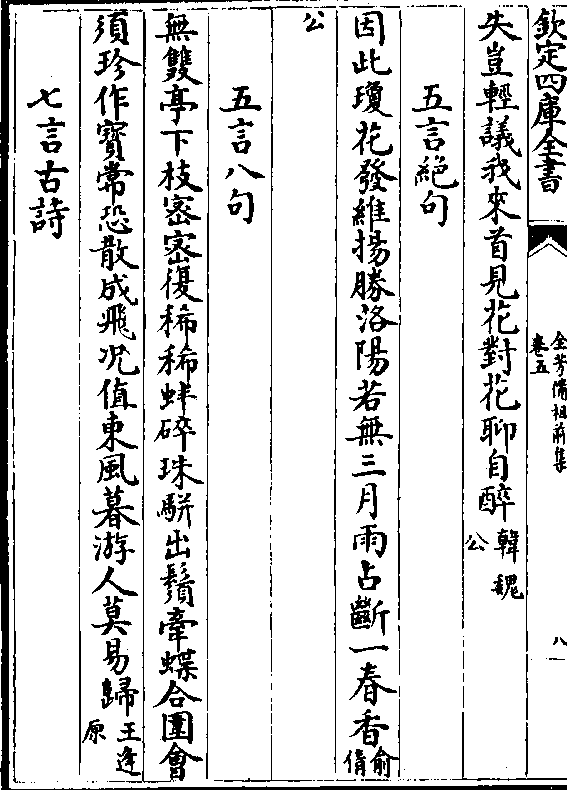 欽定四庫全書
全芳備祖前集
卷五
八
失豈輕議我來首見花對花聊自醉韓魏公
五言絕句
因此瓊花發維揚勝洛陽若無三月雨占斷一春香俞脩
公
五言八句
無雙亭下枝宻宻復稀稀蚌碎珠駢出鬚牽蝶合圍會
須珍作寳常恐散成飛况值東風暮游人莫易歸王逢原
七言古詩